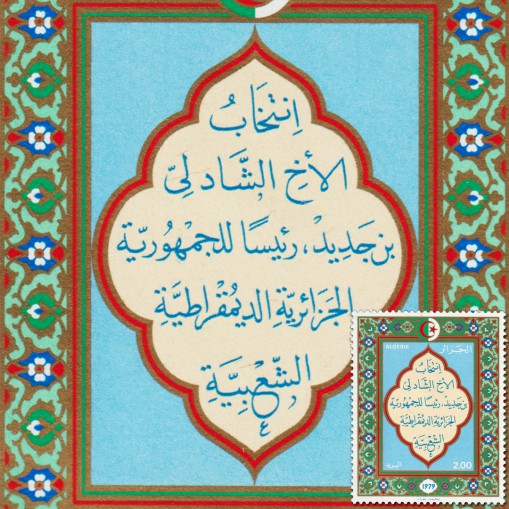 اِنتخَابُ
الأخِ الشَّاذلِيّ
بن جَدِيدْ، رئيسًا للجمْهُوريّة
الجَزائريّةِ الديمُقراطيَّةِ
الشَّعْبيَّةِ
ALGERIE الجزائر
اِنتخَابُ
الأخِ الشَّاذلِيّ
بن جَدِيدْ، رئيسًا للجمْهُوريّة
الجَزائريّةِ الديمُقراطيَّةِ
الشَّعْبيَّةِ
البريد 2.00
1979